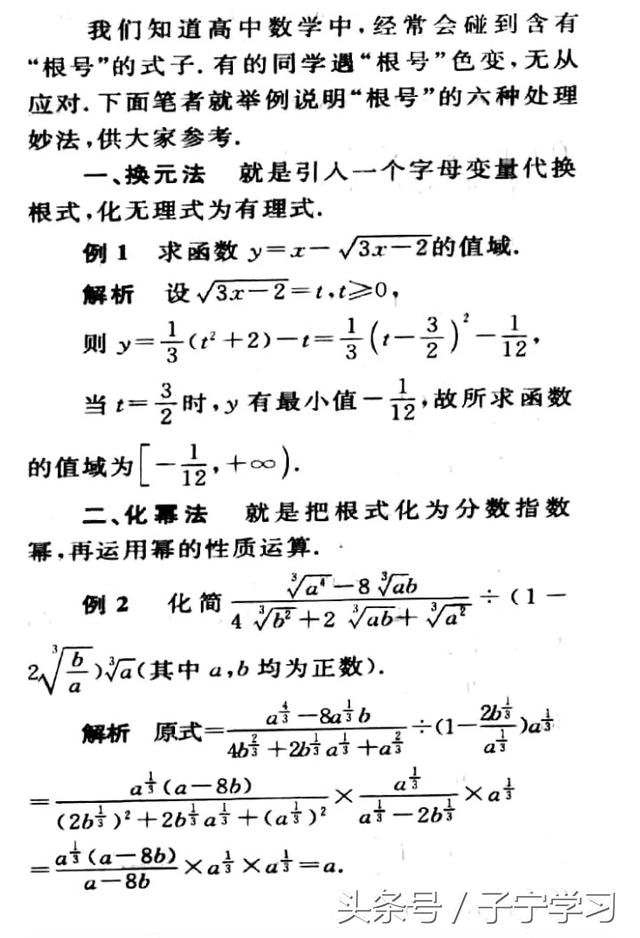 我们知道高中数学中,经常会碰到含有
“根号”的式子.有的同学遇“根号”色变,无从
应对.下面笔者就举例说明“根号”的六种处理
妙法,供大家参考.
一、换元法 就是引人一个字母变量代换
根式,化无理式为有理式.
例1 求函数 y=x-√(3x-2)的值域.
解析 设√(3x-2)=t,t≥0,
则 y=1/3(t²+2)-t=1/3(t-3/2)²-1/12,
当 t=3/2时,y 有最小值-1/12,故所求函数
的值域为[-1/12,+∞).
二、化幂法 就是把根式化为分数指数
幂,再运用幂的性质运算.
例2 化简 (∛(a⁴)-8∛ab)/(4∛(b²)+2∛(ab)+∛(a²))÷(1-
2∛(b/a))∛a(其中 a,b 均为正数).
解析 原式=(a^(4/3)-8a^(1/3)b)/(4b^(2/3)+2b^(1/3)a^(1/3)+a^(2/3))÷(1-2b^(1/3)/a^(1/3))a^(1/3)
=a^(1/3)(a-8b)/((2b^(1/3))²+2b^(1/3)a^(1/3)+(a^(1/3))²)×a^(1/3)/(a^(1/3)-2b^(1/3))×a^(1/3)
=a^(1/3)(a-8b)/(a-8b)×a^(1/3)×a^(1/3)=a.
头条号 / 子宁学习